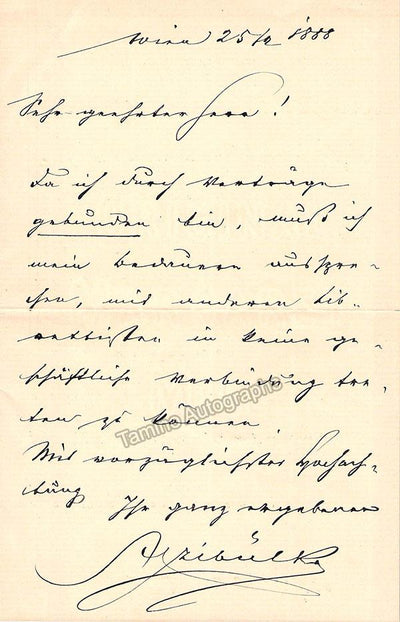 Wien 25/2 1888
Sehr geehrter Herr!
Da ich durch Verträge
gebunden bin, muß ich
mein Bedauern ausspre-
chen, mit anderen Lib-
rettisten in keine ge-
schäftliche Verbindung tre-
ten zu können.
Mit vorzüglichster Hochach-
tung
Ihr ganz ergebener
A Czibulka
Tamino Autographs